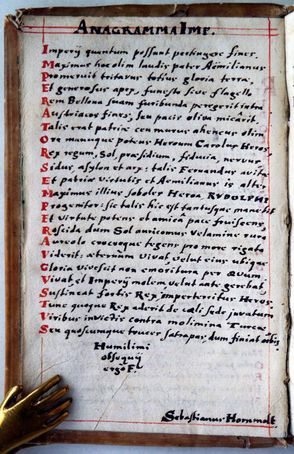 ANAGRAMMA IMP.
Imperij quantum possunt pertingere fines
Maximus hoc olim laudis pater Aemilianus
Promeruit tritavus totius gloria terræ,
Et generosus apex, funesto sive flagello
Rem Bellona suam furibunda peregerit intra
Austriacos fines, seu pacis oliva micârit,
Talis erat patriæ ceu murus aheneus olim
Ora manuque potens Heroum Carolus Heros,
Rex regum, Sol, præsidium, fiducia, nervus
Sidus, asylon et ara; talis Fernandus avita
Et patria virtute et Aemilianus is alter
Maximus illius soboles Heros. RVDOLPHI
Progenitor: sic talis hic est manetque
Et virtute potens et amica pace fruiscens,
Roscida dum Sol auricomus velamina
Aureolo croceoque tegens pro more rigato
Viderit: æternum Vivat velut eius ubique
Gloria vivescit non emoritura per
Vivat et Imperij molem velut ante gerebat
Sustineat fortis Rex imperterritus Heros,
Tunc quoque Rex aderit de cæli sede juvatum
Viribus invictis contra molimina Turcæ
Seu quoscunque truces satrapas, dum finiat orbis.
Humilimi
obsequij
ergo F.
Sebastianus Hornmolt